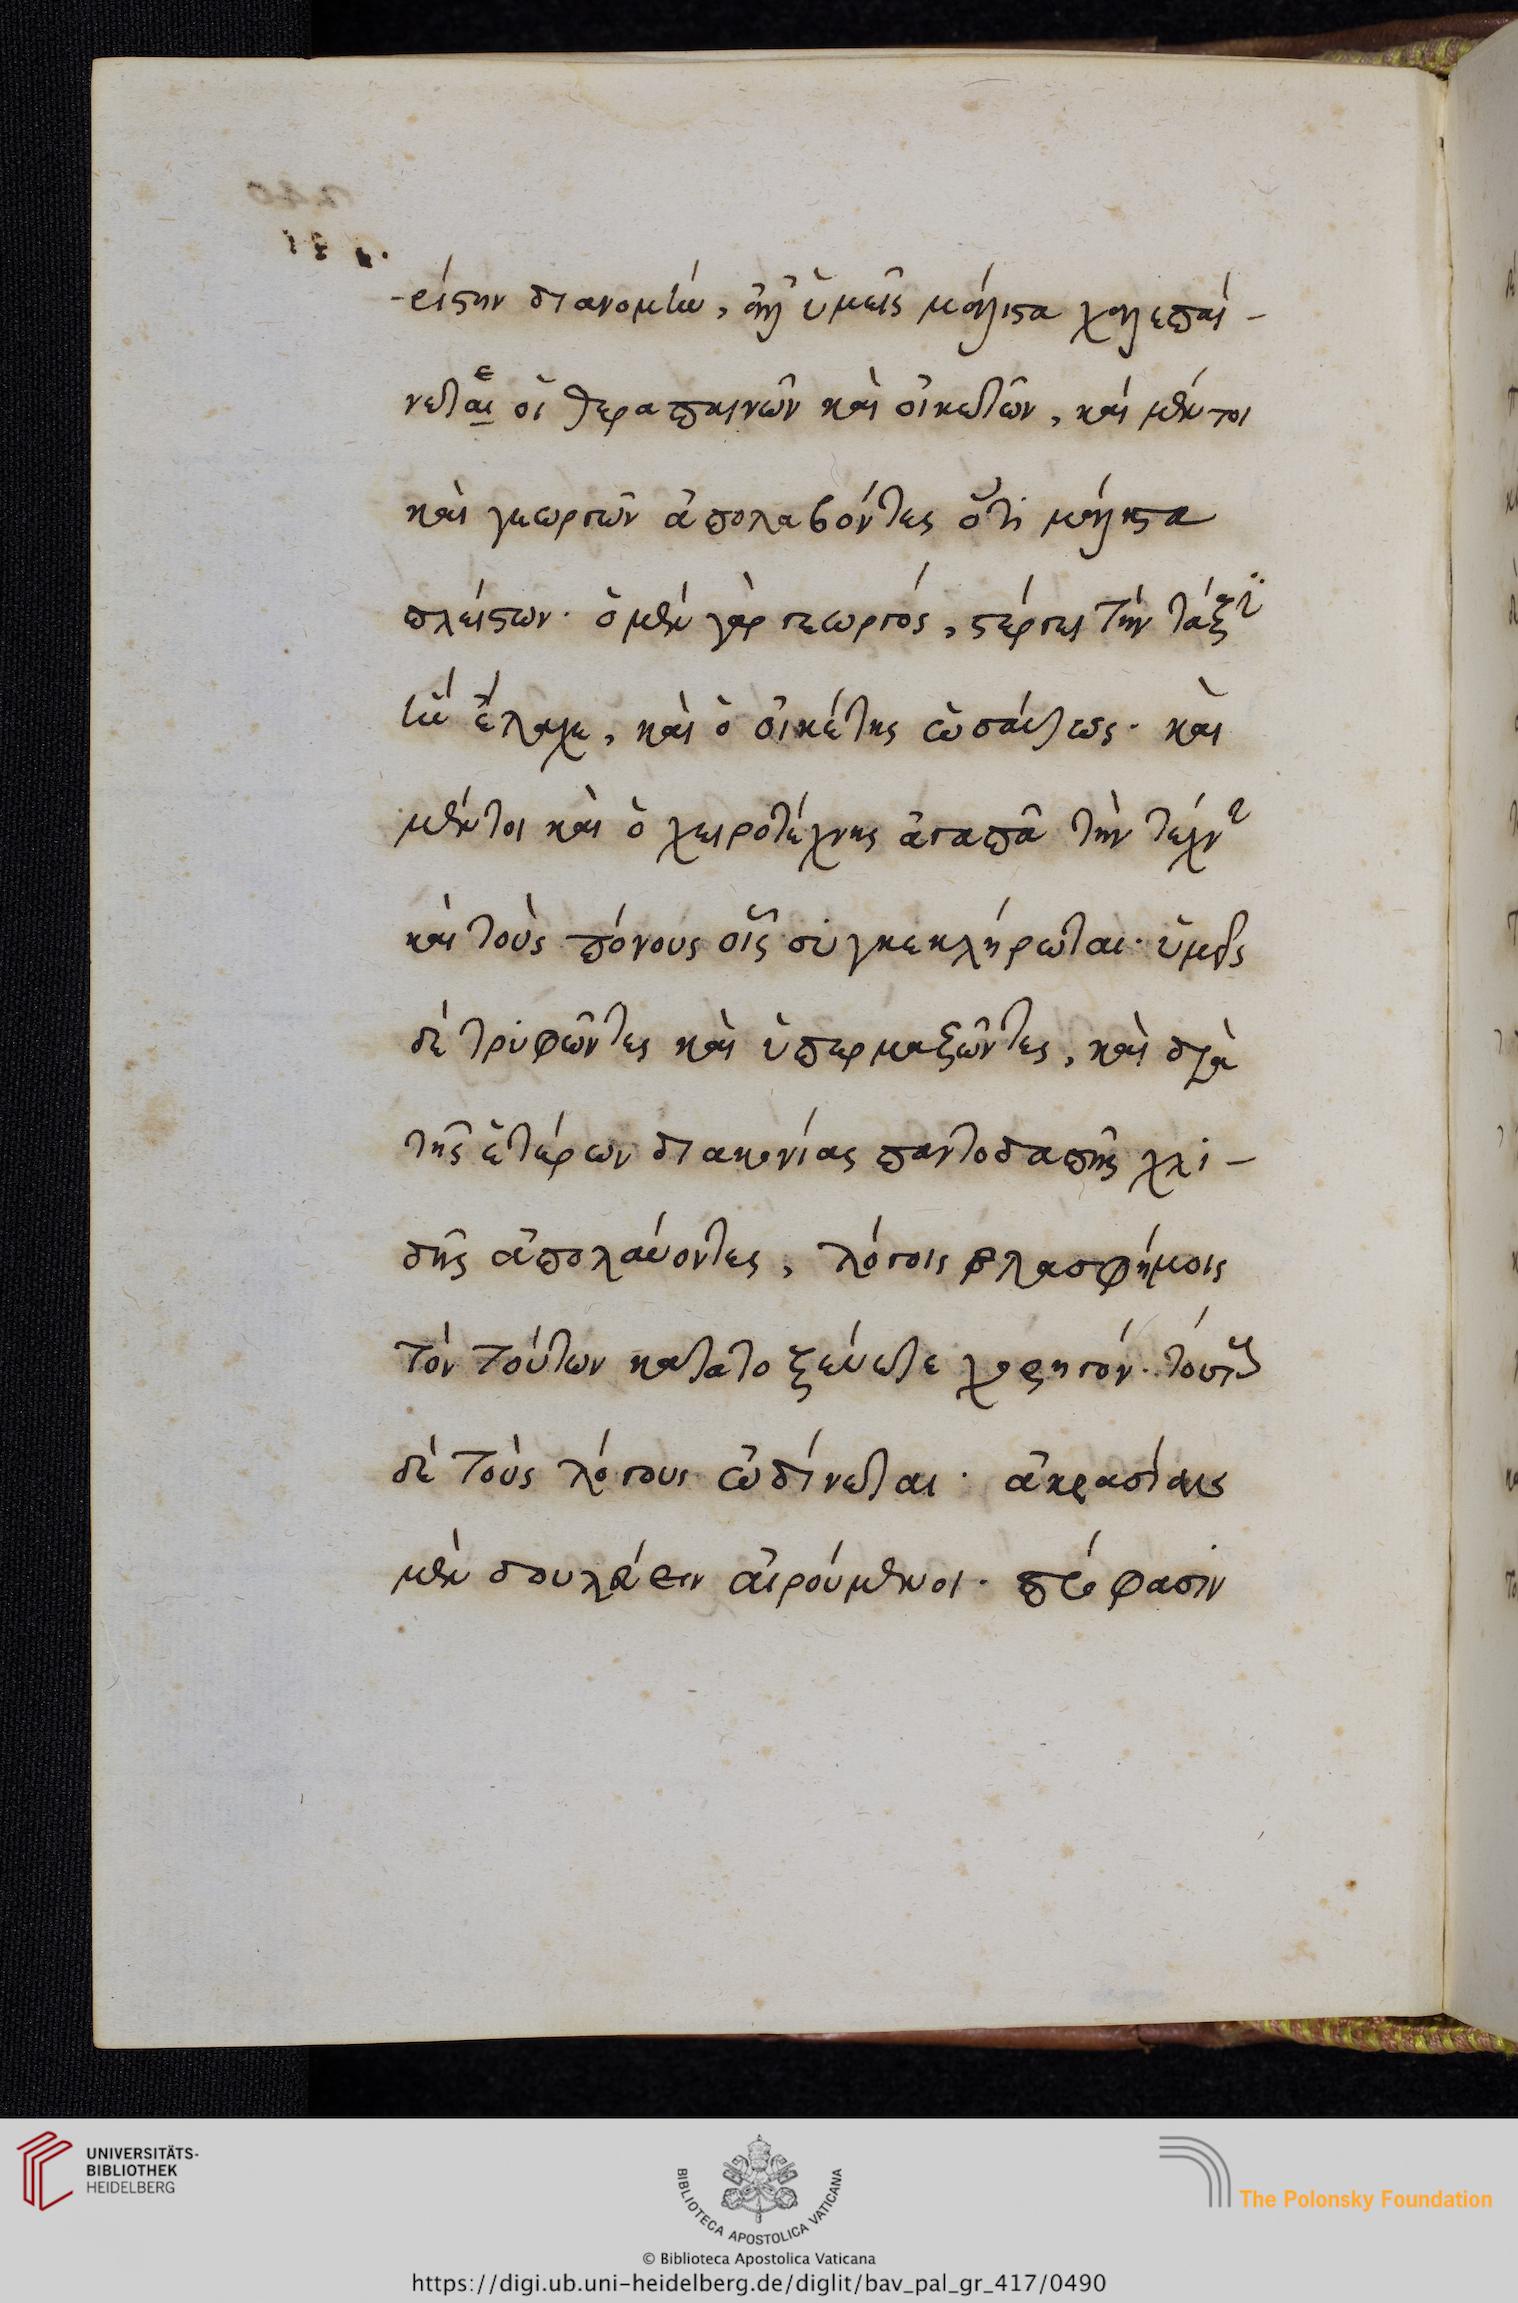 -ρίστην διανομὴν, ἀλλ' ὑμεῖς μάλιστα χαλεπαί-
νεται οἱ θεραπαινῶν καὶ οἰκετῶν, καὶ μέντοι
ε
καὶ γεωργῶν ἀπολαβόντες ὅτι μάλιστα
πλείστων· ὁ μὲν γὰρ γεωργός, στέργει τὴν τάξιν
ἣν ἔλαχε, καὶ ὁ οἰκέτης ὡσαύτως· καὶ
μέντοι καὶ ὁ χειροτέχνης ἀγαπᾶ τὴν τέχνην
καὶ τοὺς πόνους οἷς συγκεκλήρωται· ὑμεῖς
δὲ τρυφῶντες καὶ ὑπερμαζῶντες, καὶ διὰ
τῆς ἑτέρων διακονίας παντοδαπῆς χλι-
δῆς ἀπολαύοντες, λόγοις βλασφήμοις
τὸν τούτων κατατοξεύετε χορηγόν· τούτους
δὲ τοὺς λόγους ὠδίνεται· ἀκρασίαις
μὲν δουλεύειν αἱρούμενοι· πρόφασιν
UNIVERSITÄTS-
BIBLIOTHEK
HEIDELBERG
BIBLIOTECA APOSTOLICA VATICANA
The Polonsky Foundation
© Biblioteca Apostolica Vaticana
https://digi.ub.uni-heidelberg.de/diglit/bav_pal_gr_417/0490